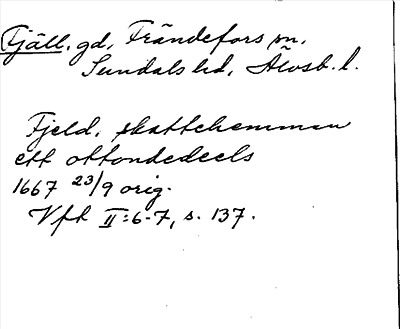 Fjäll, gd, Frändefors sn,
Sundals hd, Älvsb. l.
Fjeld, skattehemman
ett ottondedeels
1667 23/9 orig.
Vfh II:6-7, s. 137.